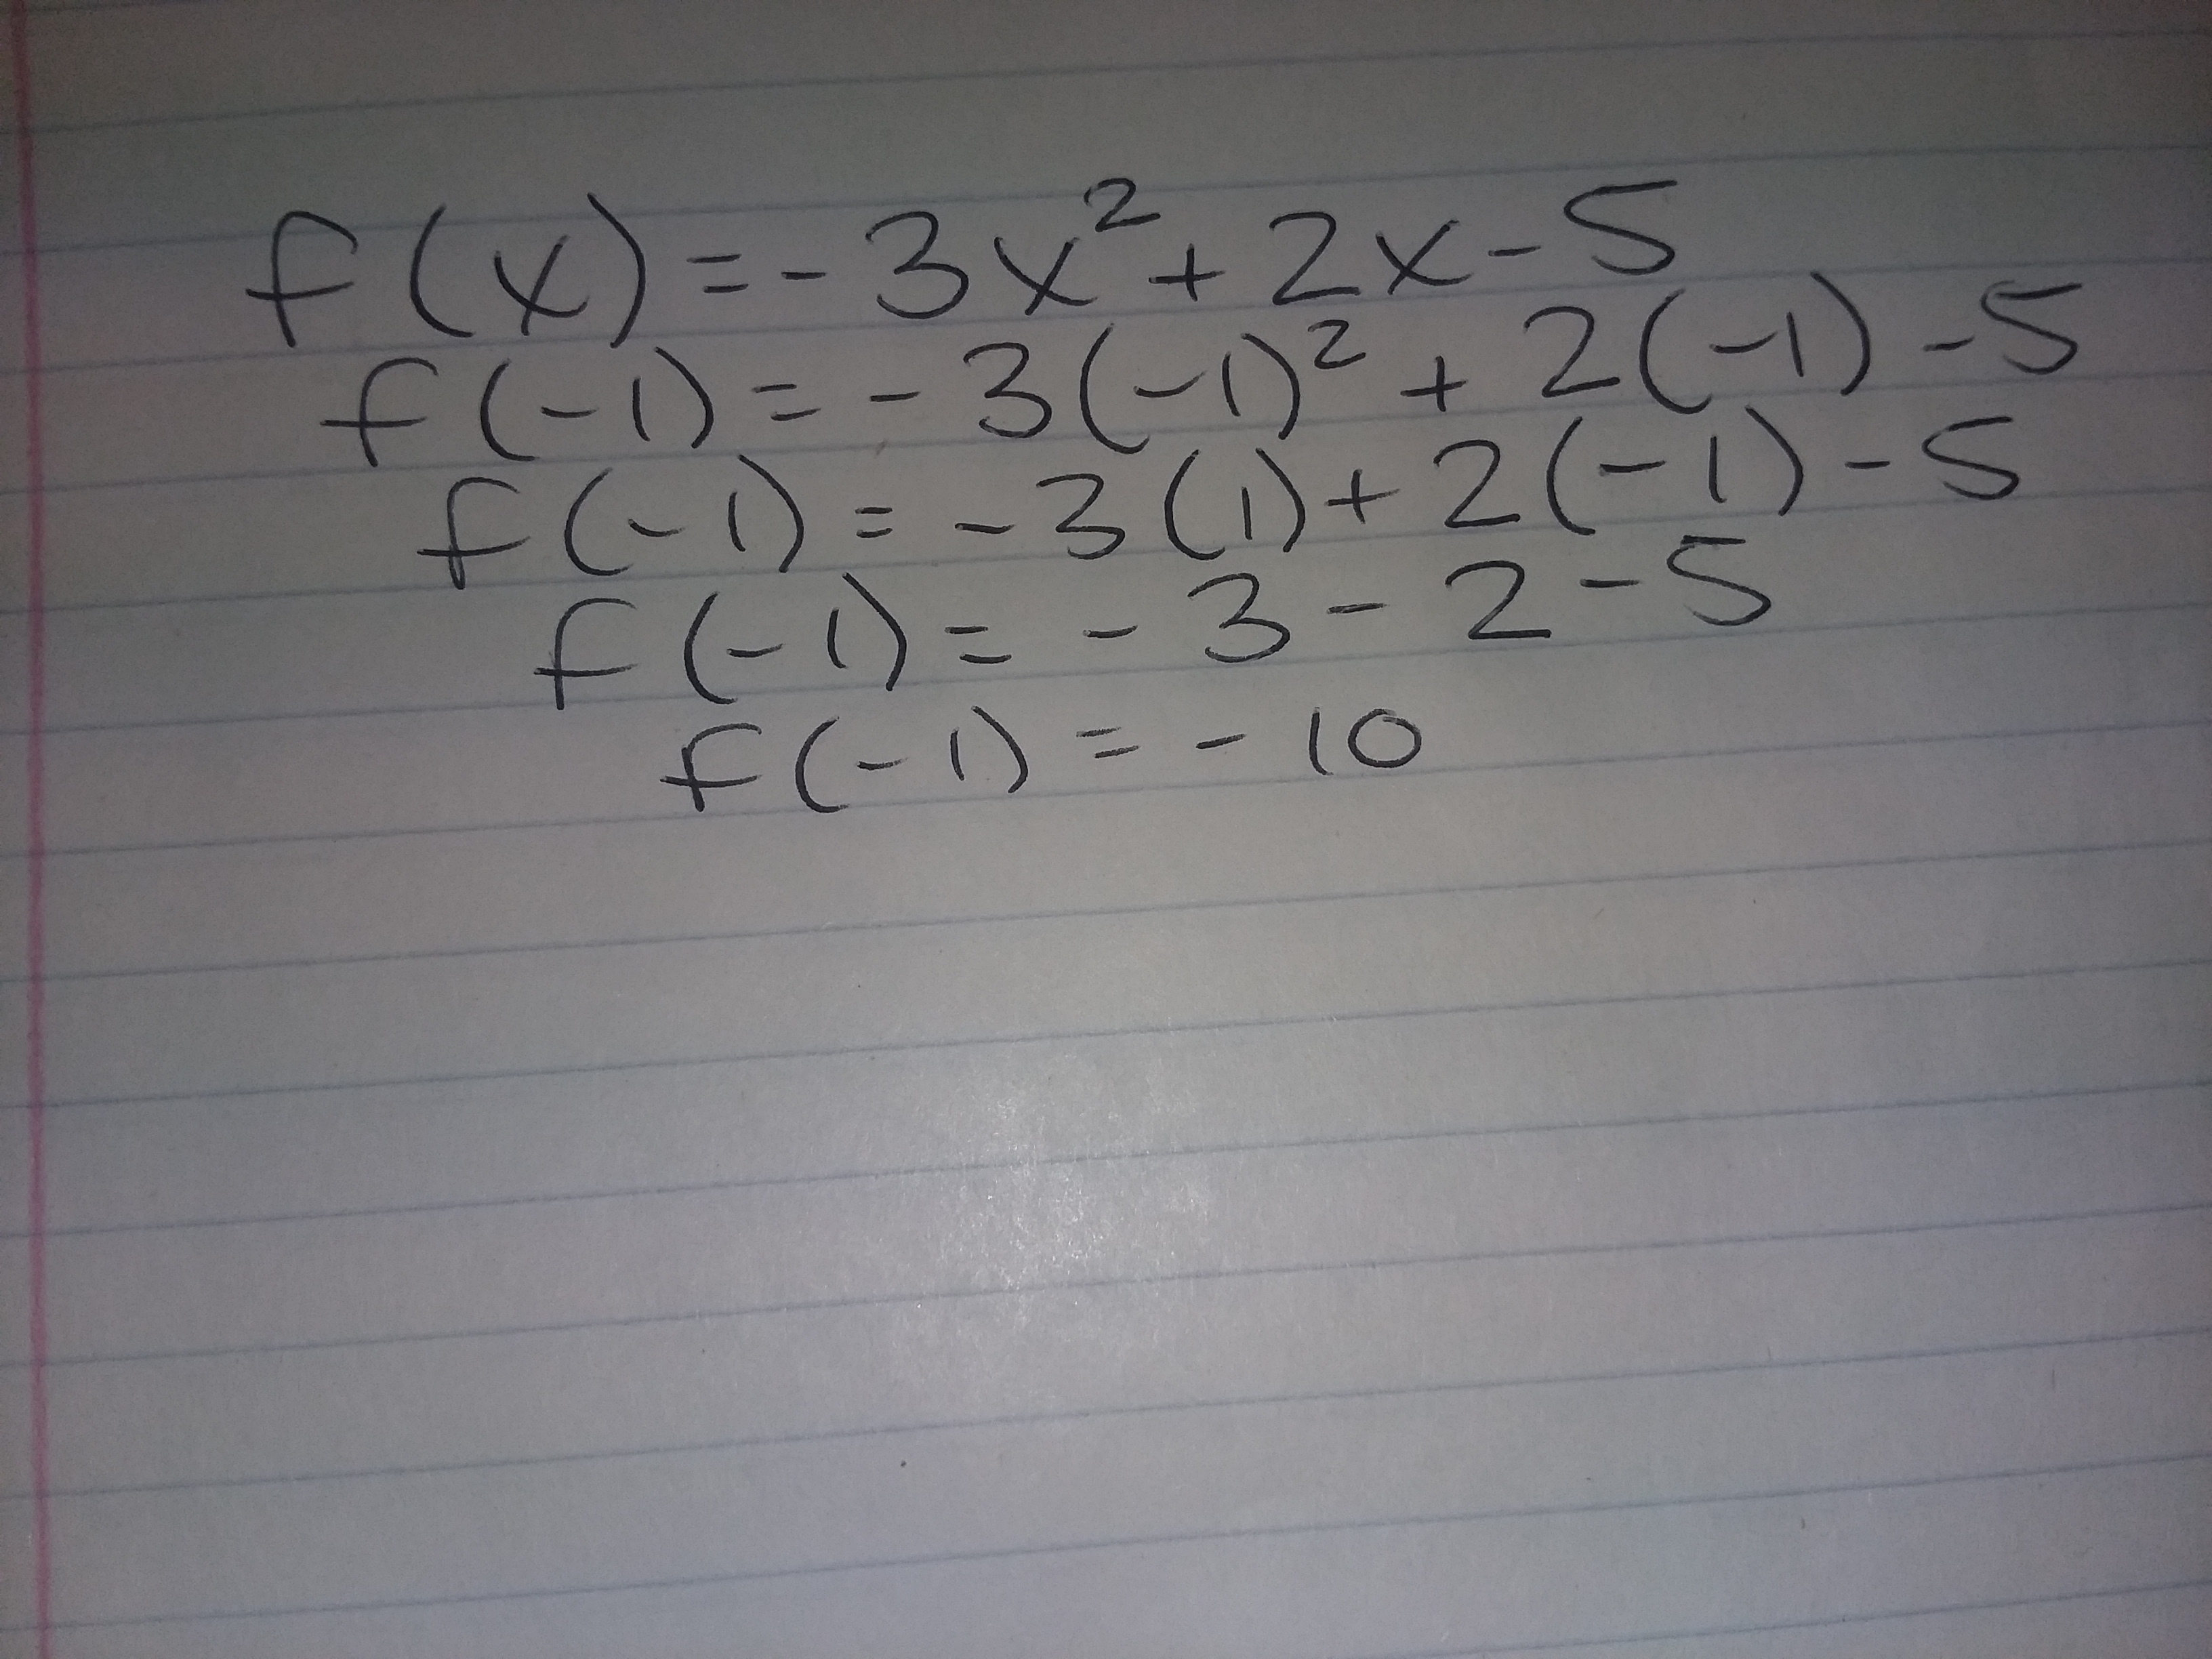 f(x) = - 3x² + 2x - 5
f(-1) = - 3(-1)² + 2(-1) - 5
f(-1) = - 3(1) + 2(-1) - 5
f(-1) = - 3 - 2 - 5
f(-1) = - 10